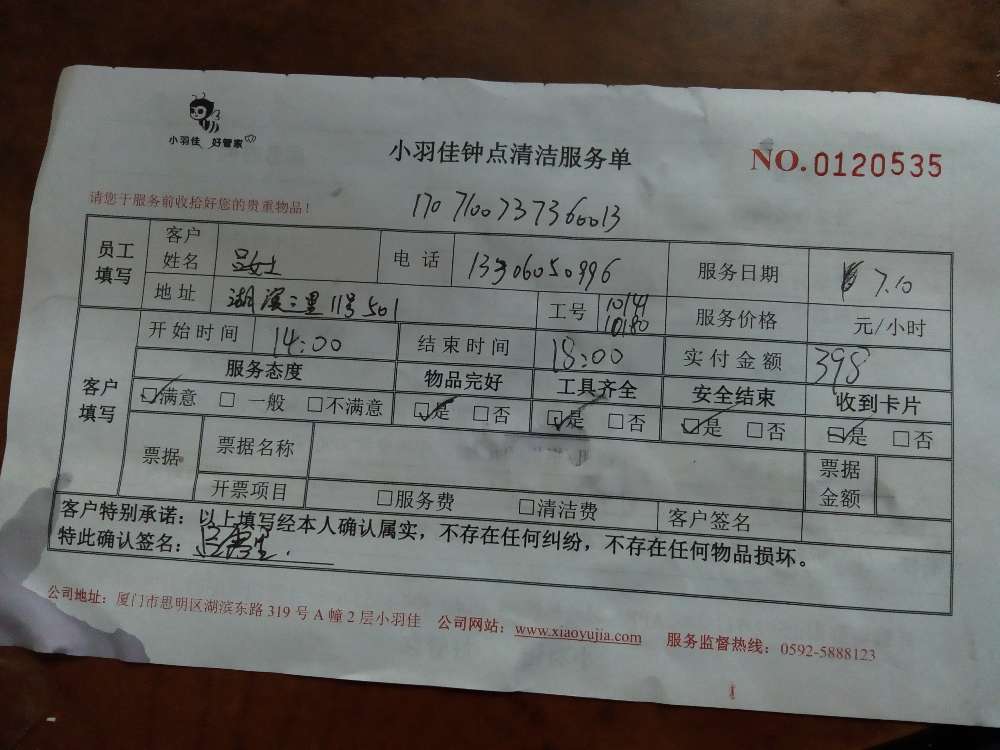 小羽佳 好管家
小羽佳钟点清洁服务单
NO.0120535
请您于服务前收拾好您的贵重物品!
170710073736 0013
员工填写 客户姓名 吕女士 电话 13306050996 服务日期 7.10
地址 湖滨三里11号501 工号 10141 10180 服务价格 元/小时
客户填写 开始时间 14:00 结束时间 18:00 实付金额 398
服务态度 物品完好 工具齐全 安全结束 收到卡片
☑满意 □一般 □不满意 ☑是 □否 ☑是 □否 ☑是 □否 ☑是 □否
票据 票据名称 票据金额
开票项目 □服务费 □清洁费 客户签名
客户特别承诺:以上填写经本人确认属实,不存在任何纠纷,不存在任何物品损坏。
特此确认签名:
公司地址:厦门市思明区湖滨东路319号A幢2层小羽佳 公司网站:www.xiaoyujia.com 服务监督热线:0592-5888123